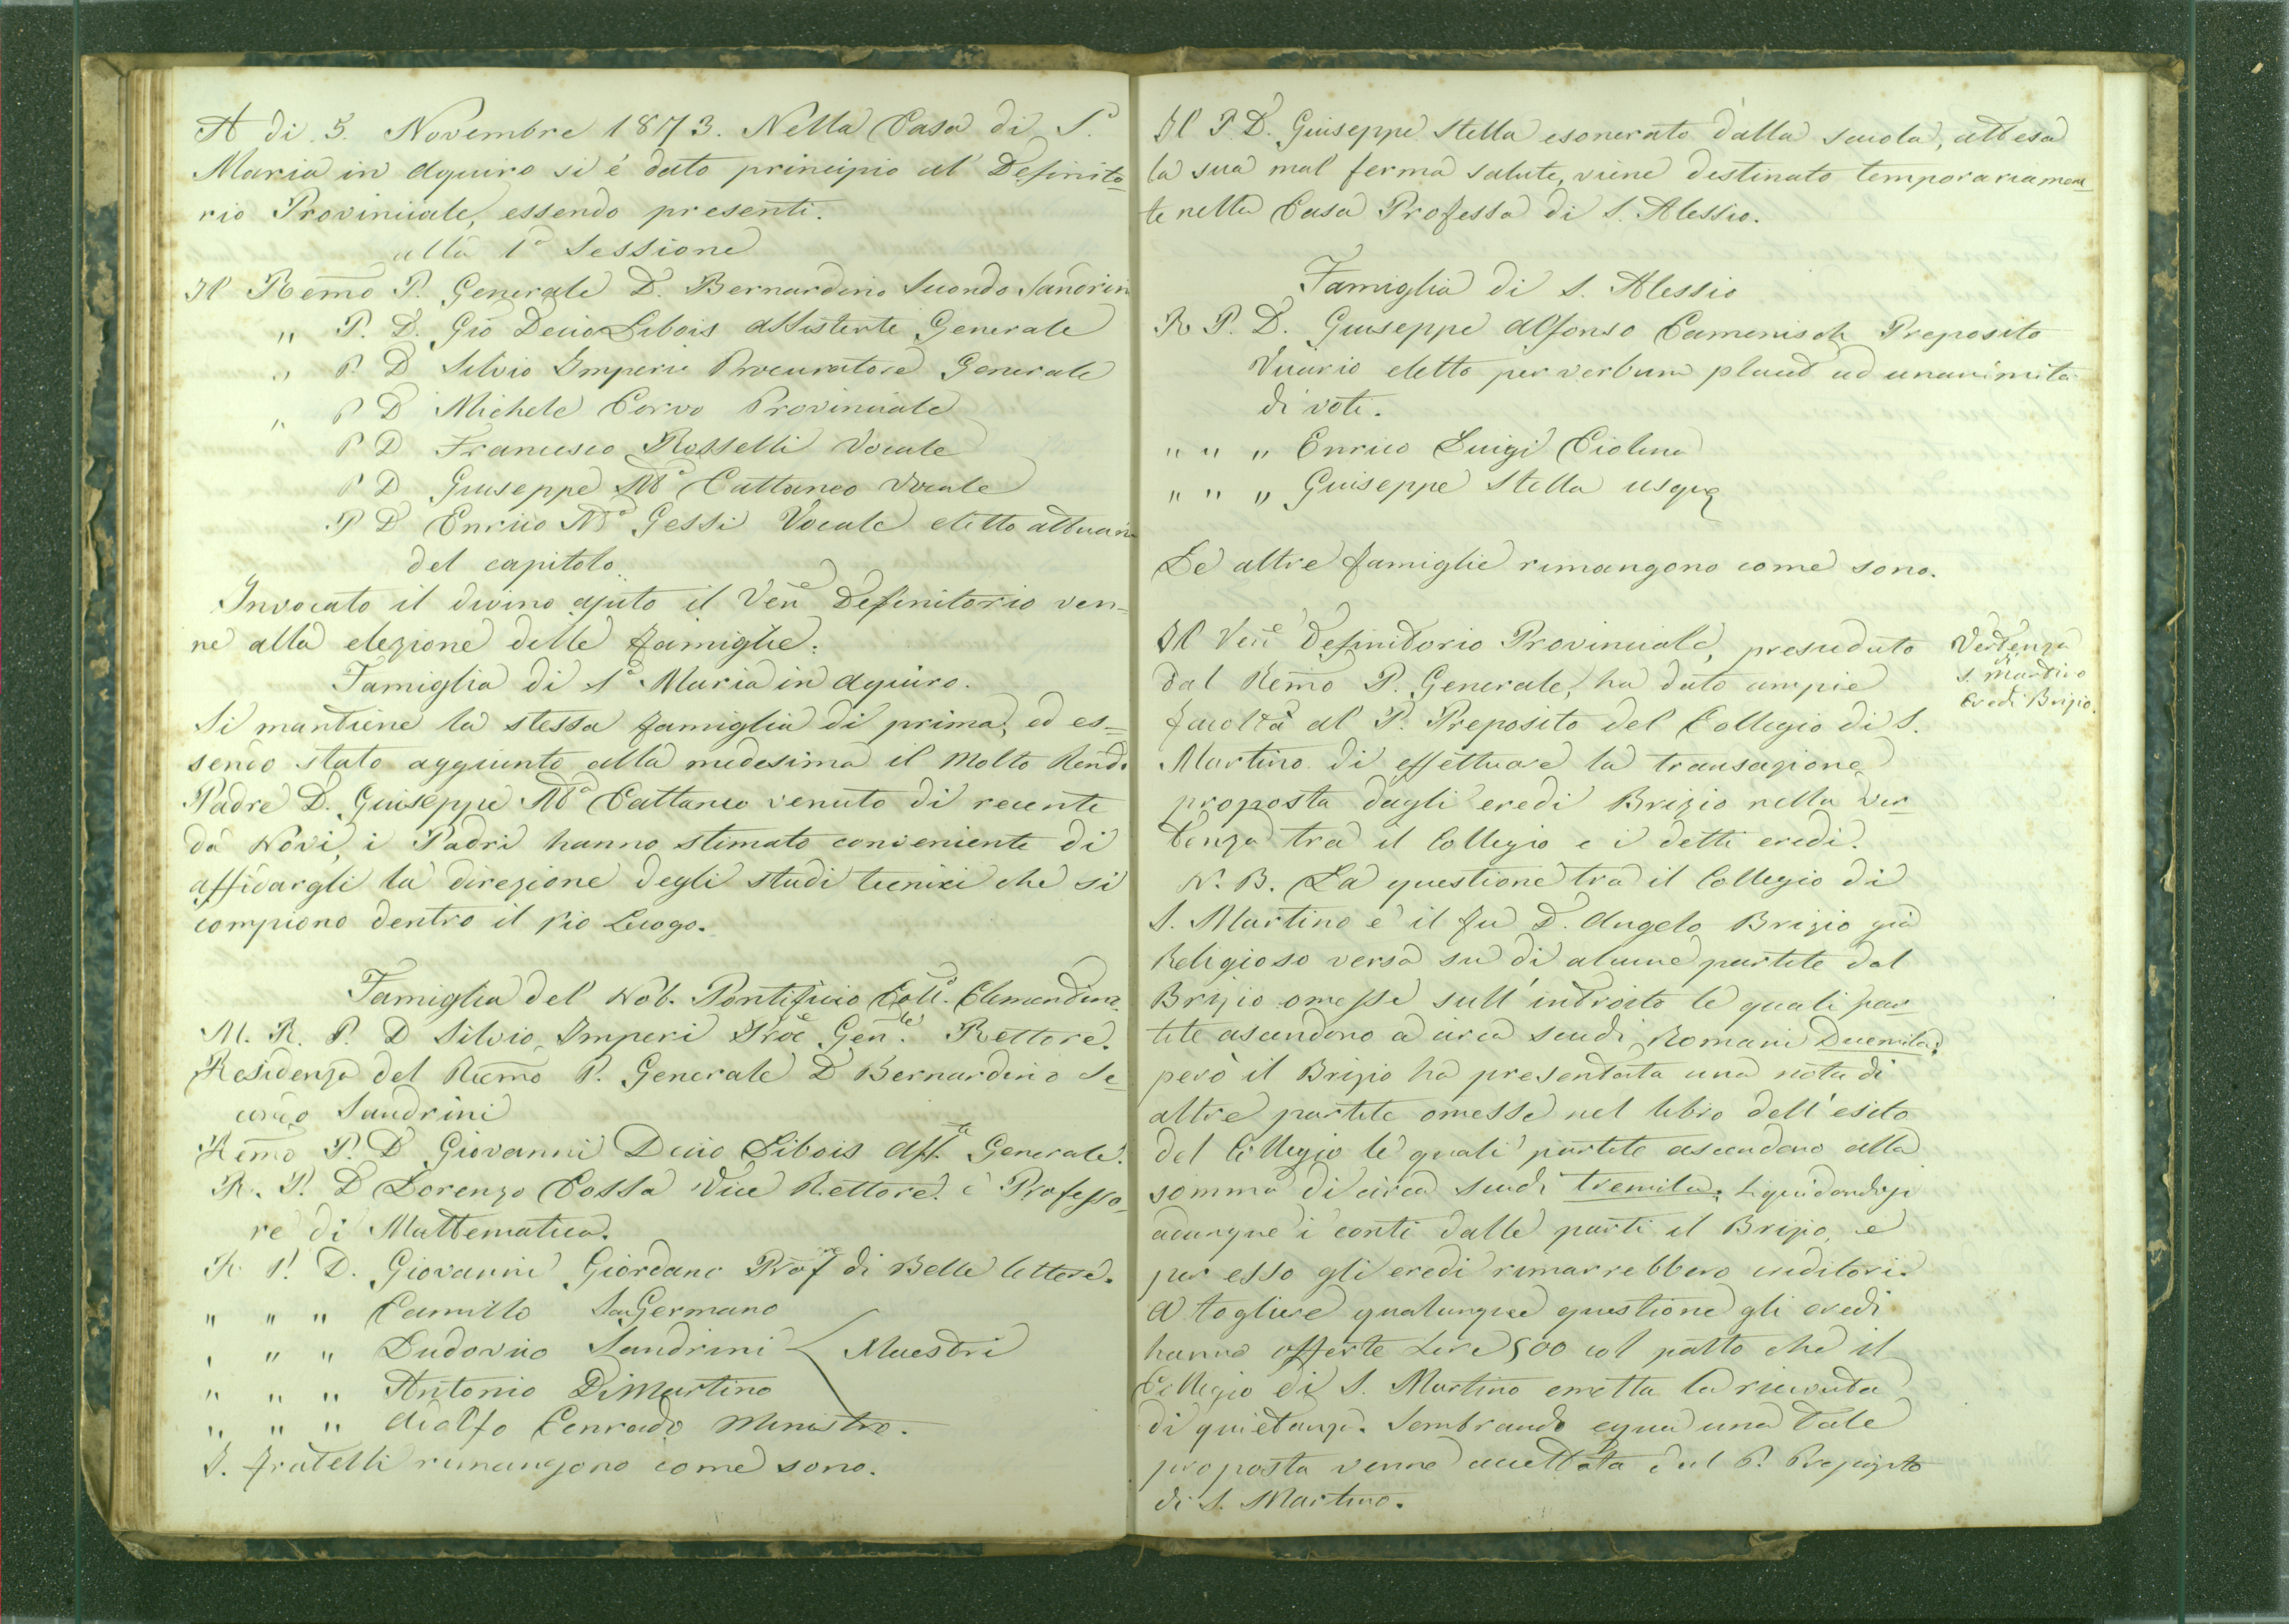 A di 5. Novembre 1873. Nella Casa di S.
Maria in Aquiro si è dato principio al Definito=
rio Provinciale, essendo presenti.
alla 1ª Sessione
Il Remo P. Generale D. Bernardino Secondo Sandrini
" P. D. Gio Decio Libois Assistente Generale
" P. D Silvio Imperi Procuratore Generale
" P D Michele Corvo Provinciale
P D Francesco Rosselli Vocale
P D Giuseppe Mª Cattaneo Vocale
P D Enrico Mª Gessi Vocale eletto attuario
del capitolo.
Invocato il divino ajuto il Vene Definitorio ven=
ne alla elezione delle famiglie.
Famiglia di Sª Maria in Aquiro.
Si mantiene la stessa famiglia di prima, ed es=
sendo stato aggiunto alla medesima il Molto Rendo
Padre D. Giuseppe Mª Cattaneo venuto di recente
da Novi, i Padri hanno stimato conveniente di
affidargli la direzione degli studi tecnici che si
compiono dentro il pio Luogo.
Famiglia del Nob. Pontificio Coll. Clementino
M. R. P. D Silvio Imperi Proc Genle. Rettore.
Residenza del Remo P. Generale D Bernardino Se=
condo Sandrini
Remo P. D Giovanni Decio Libois Asste Generale.
R. P. D Lorenzo Cossa Vice Rettore e Professo=
re di Mattematica.
R. P. D. Giovanni Giordano Profre di Belle lettere.
" " " Camillo SanGermano
" " " Ludovico Sandrini Maestri
" " " Antonio DiMartino
" " " Adolfo Conrado Ministro.
I. fratelli rimangono come sono.
Il P. D. Giuseppe Stella esonerato dalla scuola, attesa
la sua mal ferma salute, viene destinato temporariamen=
te nella Casa Professa di S. Alessio.
Famiglia di S. Alessio
R P. D. Giuseppe Alfonso Camenisch Preposito
Vicario eletto per verbum placet ad unanimità
di voti.
" " " Enrico Luigi Ciolina
" " " Giuseppe Stella usque
Le altre famiglie rimangono come sono.
Il Vene Definitorio Provinciale, presieduto
dal Remo P. Generale, ha dato ampie
facoltà al P. Preposito del Collegio di S.
Martino di effettuare la transazione
proposta dagli eredi Brizio nella ver=
tenza tra il Collegio e i detti eredi.
Vertenza
di
S. Martino
Eredi Brizio.
N. B. La questione tra il Collegio di
S. Martino e il fu D. Angelo Brizio già
Religioso versa su di alcune partite dal
Brizio omesse sull'introito le quali par=
tite ascendono a circa scudi Romani Duemila:
però il Brizio ha presentata una nota di
altre partite omesse nel libro dell'esito
del Collegio le quali partite ascendono alla
somma di circa scudi tremila. Liquidandosi
adunque i conti dalle parti il Brizio, e
per esso gli eredi rimarrebbero creditori.
A togliere qualunque questione gli eredi
hanno offerte Lire 500 col patto che il
Collegio di S. Martino emetta la ricevuta
di quietanza. Sembrando equa una tale
proposta venne accettata dal P. Preposito
di S. Martino.